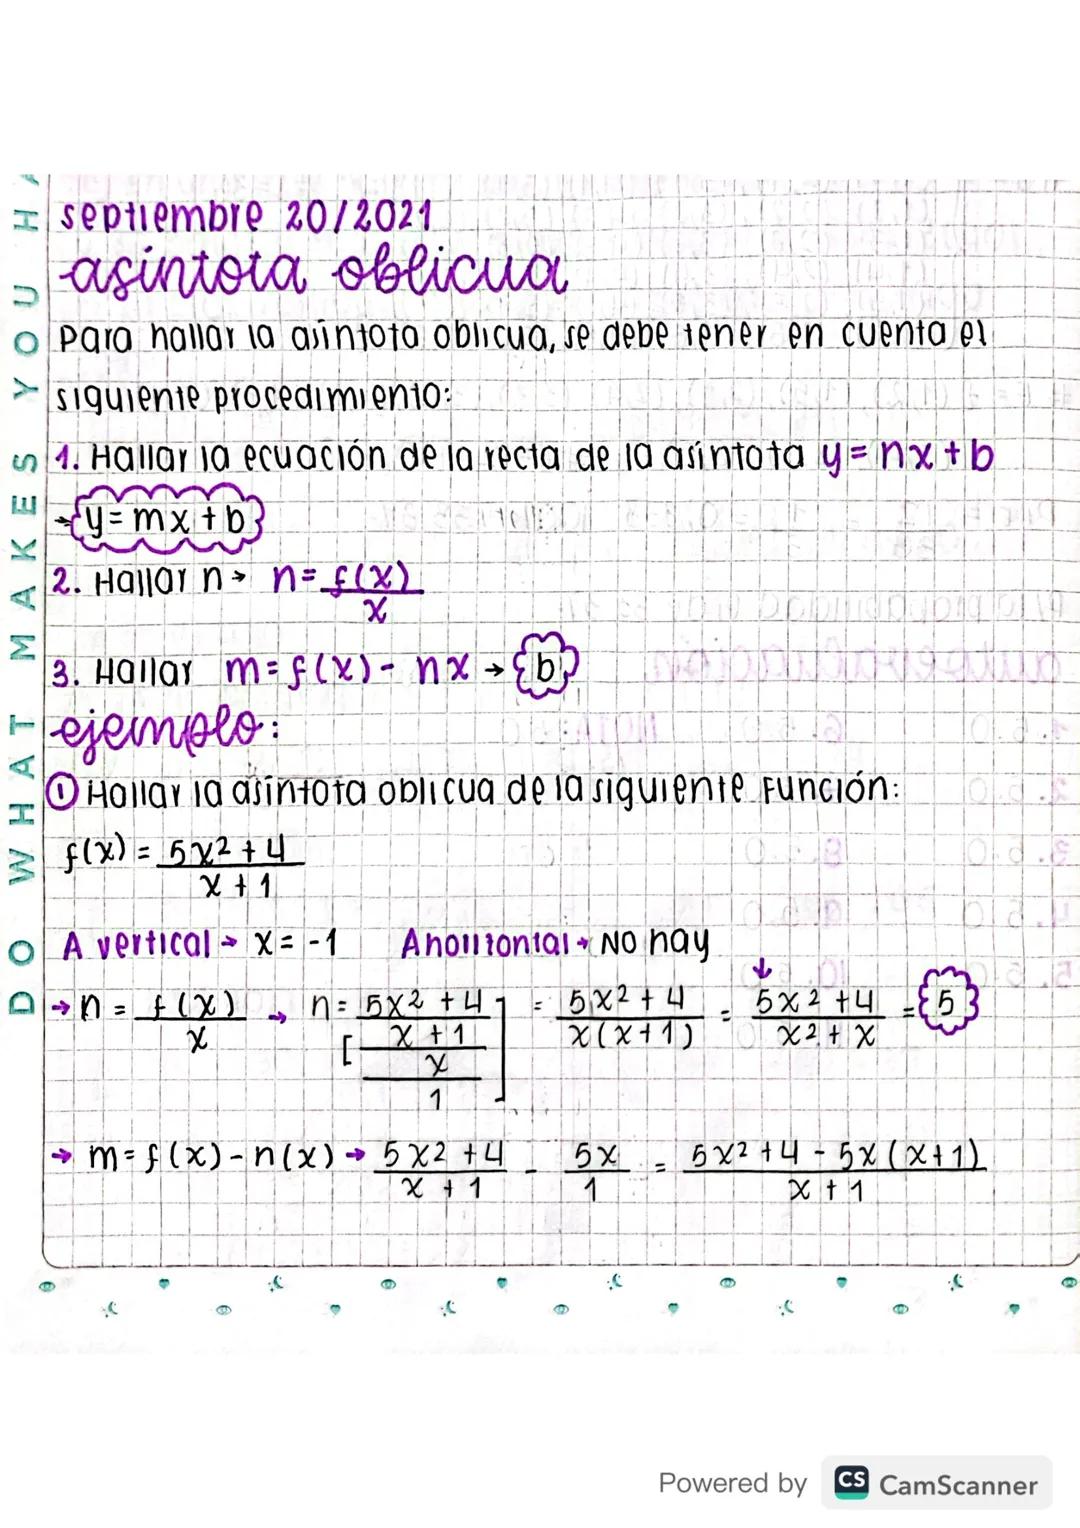 DO WHAT MAKES YOU HA
septiembre 20/2021
asíntota oblicua
Para hallar la asíntota oblicua, se debe tener en cuenta el
siguiente procedimiento:
1. Hallar la ecuación de la recta de la asíntota y = nx + b
→ y = mx + b
2. Hallar n → n = f(x)/x
3. Hallar m = f(x) - nx → b
ejemplo:
① Hallar la asíntota oblicua de la siguiente función:
f(x) = 5x² + 4 / x + 1
A vertical → x = -1 A horizontal → No hay
→ n = f(x)/x → n = [5x² + 4 / x + 1 / x / 1] = 5x² + 4 / x(x+1) = 5x² + 4 / x² + x = 5
→ m = f(x) - n(x) → 5x² + 4 / x + 1 - 5x / 1 = 5x² + 4 - 5x(x+1) / x + 1
Powered by CS CamScanner